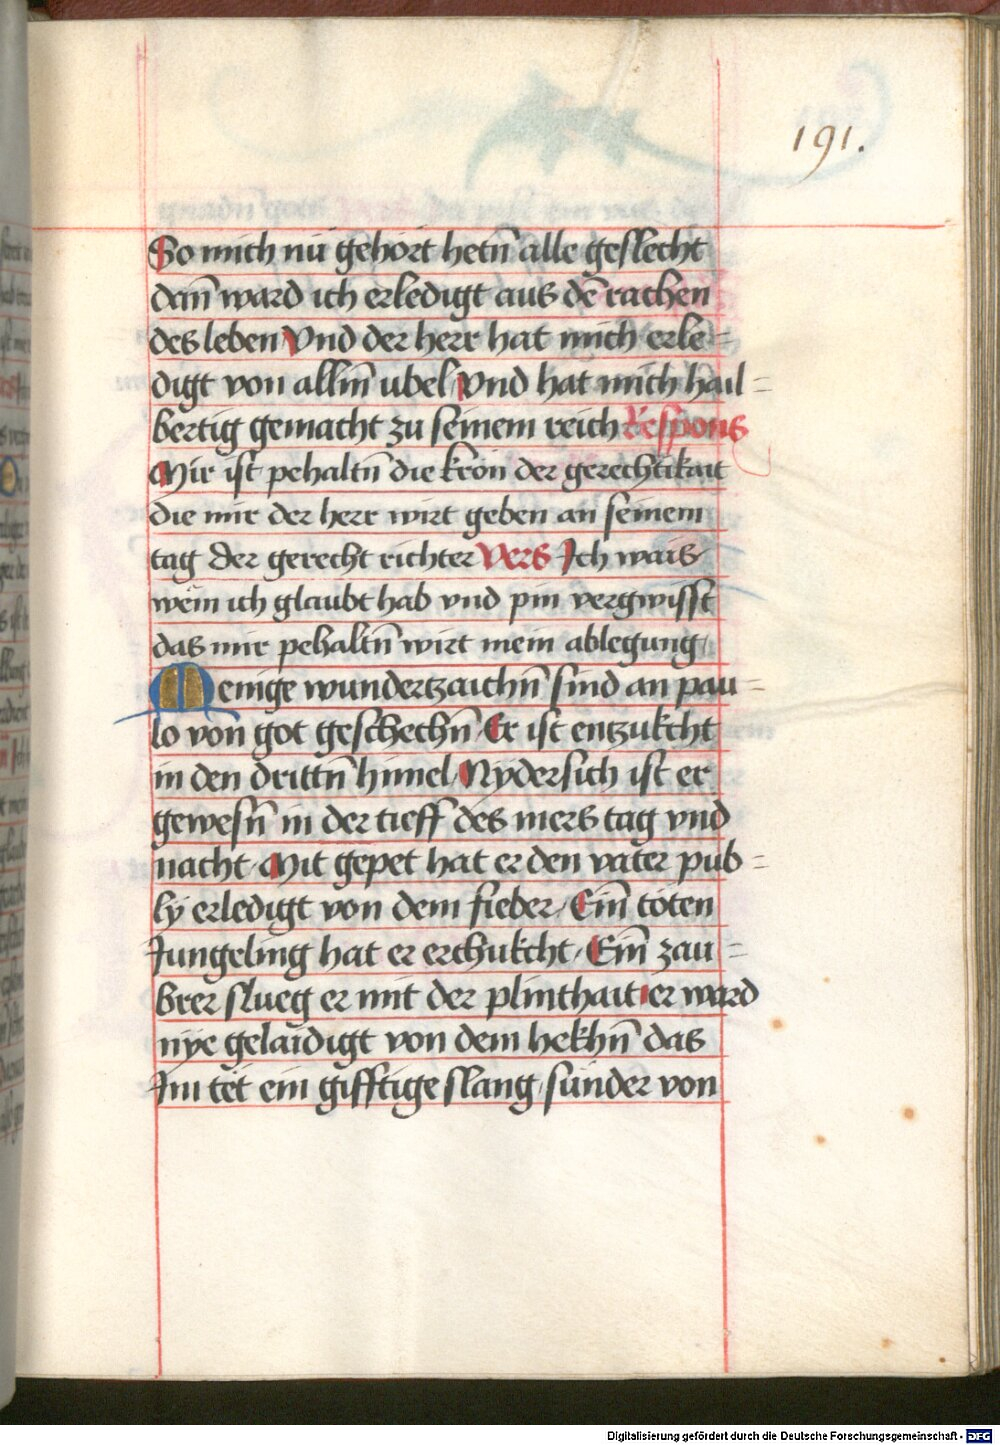 191.
So mich nu gehört hetn̄ alle geslecht
dan̄ ward ich erledigt aus dē rachen
des leben Vnd der herr hat mich erle=
digt von allm̄ ubel Vnd hat mich hail=
bertig gemacht zu seinem reich Respons
Mir ist pehaltn̄ die kron der gerechtikait
die mir der herr wirt geben an seinem
tag der gerecht richter Vers Ich wais
wem ich glaubt hab vnd pin vergwisst
das mir pehaltn̄ wirt mein ablegung
Menige wundertzaichn̄ sind an pau=
lo von got geschechn̄ Er ist entzukcht
in den drittn̄ himel Nydersich ist er
gewesn̄ in der tieff des mers tag vnd
nacht Mit gepet hat er den vater pub=
ly erledigt von dem fieber Ein̄ toten
Jungeling hat er erchukcht Ein̄ zau=
brer slueg er mit der plinthait er ward
nye gelaidigt von dem hekhn̄ das
Im tet ein gifftige slang sunder von
Digitalisierung gefördert durch die Deutsche Forschungsgemeinschaft - DFG